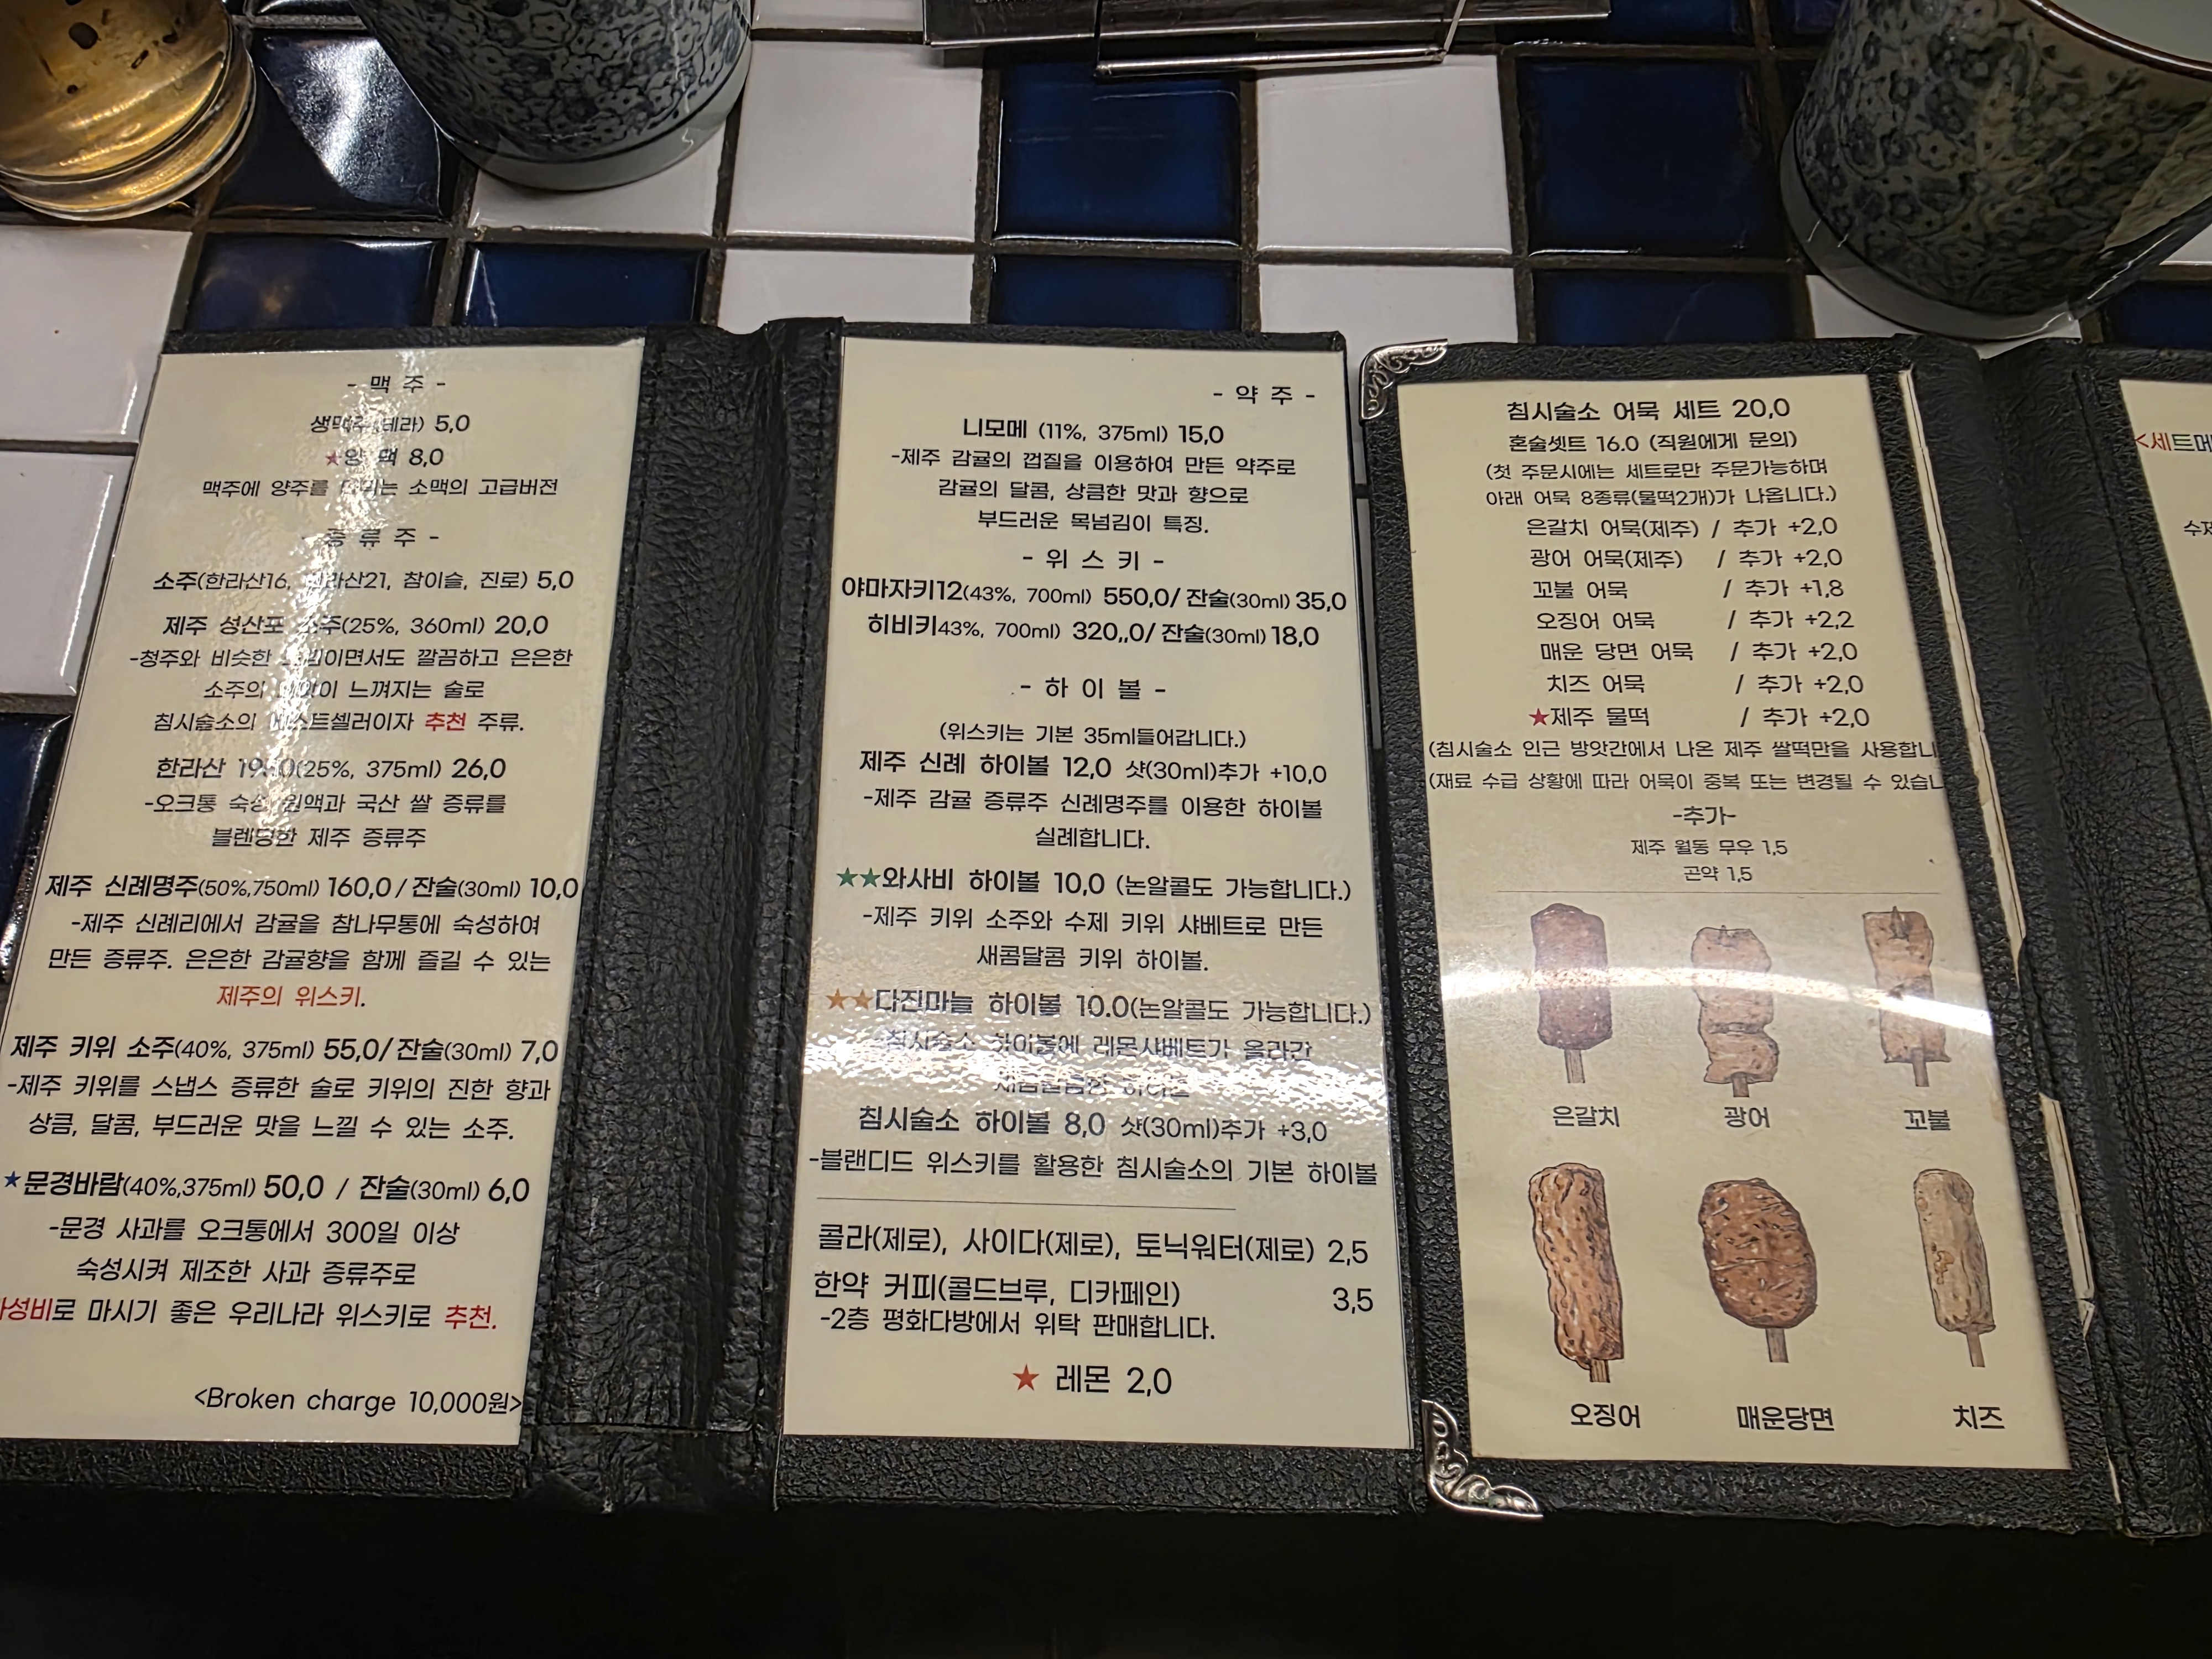 - 맥 주 -
생맥주(테라) 5,0
★양 맥 8,0
맥주에 양주를 소맥의 고급버전
- 증 류 주 -
소주(한라산16, 한라산21, 참이슬, 진로) 5,0
제주 성산포 소주(25%, 360ml) 20,0
-청주와 비슷한 깔끔하고 은은한
소주의 느껴지는 술로
침시술소의 베스트셀러이자 추천 주류.
한라산 1950(25%, 375ml) 26,0
-오크통 숙성 원액과 국산 쌀 증류를
블렌딩한 제주 증류주
제주 신례명주(50%,750ml) 160,0 / 잔술(30ml) 10,0
-제주 신례리에서 감귤을 참나무통에 숙성하여
만든 증류주. 은은한 감귤향을 함께 즐길 수 있는
제주의 위스키.
제주 키위 소주(40%, 375ml) 55,0/ 잔술(30ml) 7,0
-제주 키위를 스냅스 증류한 술로 키위의 진한 향과
상큼, 달콤, 부드러운 맛을 느낄 수 있는 소주.
★문경바람(40%,375ml) 50,0 / 잔술(30ml) 6,0
-문경 사과를 오크통에서 300일 이상
숙성시켜 제조한 사과 증류주로
가성비로 마시기 좋은 우리나라 위스키로 추천.
<Broken charge 10,000원>
- 약 주 -
니모메 (11%, 375ml) 15,0
-제주 감귤의 껍질을 이용하여 만든 약주로
감귤의 달콤, 상큼한 맛과 향으로
부드러운 목넘김이 특징.
- 위 스 키 -
야마자키12(43%, 700ml) 550,0/ 잔술(30ml) 35,0
히비키43%, 700ml) 320,,0/ 잔술(30ml) 18,0
- 하 이 볼 -
(위스키는 기본 35ml들어갑니다.)
제주 신례 하이볼 12,0 샷(30ml)추가 +10,0
-제주 감귤 증류주 신례명주를 이용한 하이볼
실례합니다.
★★와사비 하이볼 10,0 (논알콜도 가능합니다.)
-제주 키위 소주와 수제 키위 샤베트로 만든
새콤달콤 키위 하이볼.
★★다진마늘 하이볼 10.0(논알콜도 가능합니다.)
침시술소 하이볼에 레몬샤베트가 올라간
침시술소 하이볼 8,0 샷(30ml)추가 +3,0
-블랜디드 위스키를 활용한 침시술소의 기본 하이볼
콜라(제로), 사이다(제로), 토닉워터(제로) 2,5
한약 커피(콜드브루, 디카페인) 3,5
-2층 평화다방에서 위탁 판매합니다.
★ 레몬 2,0
침시술소 어묵 세트 20,0
혼술셋트 16.0 (직원에게 문의)
(첫 주문시에는 세트로만 주문가능하며
아래 어묵 8종류(물떡2개)가 나옵니다.)
은갈치 어묵(제주) / 추가 +2,0
광어 어묵(제주) / 추가 +2,0
꼬불 어묵 / 추가 +1,8
오징어 어묵 / 추가 +2,2
매운 당면 어묵 / 추가 +2,0
치즈 어묵 / 추가 +2,0
★제주 물떡 / 추가 +2,0
(침시술소 인근 방앗간에서 나온 제주 쌀떡만을 사용합니
(재료 수급 상황에 따라 어묵이 중복 또는 변경될 수 있습니
-추가-
제주 월동 무우 1,5
곤약 1,5
은갈치 광어 꼬불
오징어 매운당면 치즈
<세트메
수제